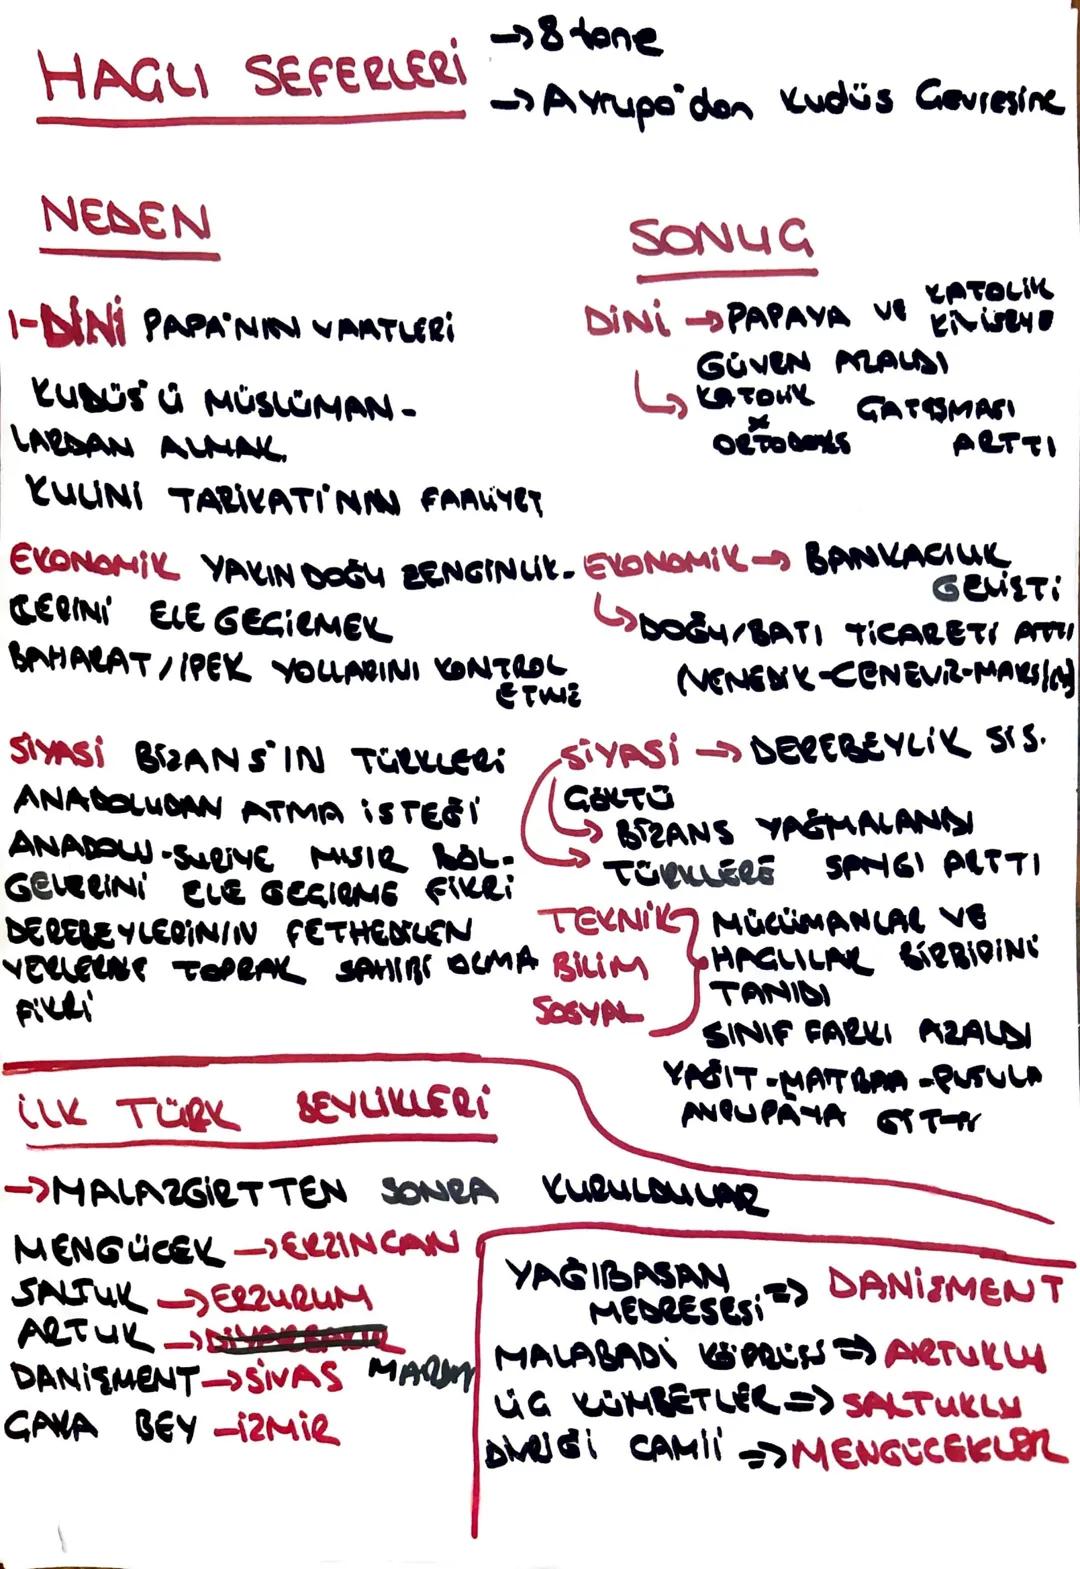 HAÇLI SEFERLERİ
→ 8 tane
→ Avrupa'dan Kudüs Çevresine
NEDEN
1-DİNİ PAPA'NIN VAATLERİ
KUDÜS'Ü MÜSLÜMAN-
LARDAN ALMAK.
KULINI TARİKATI'NIN FAALİYET
EKONOMİK YAKINDOĞU ZENGİNLİK-
LERİNİ ELE GEÇİRMEK
BAHARAT/İPEK YOLLARINI KONTROL
ETME
SİYASİ BİZANS'IN TÜRKLERİ
ANADOLUDAN ATMA İSTEĞİ
ANADOLU-SURİYE MISIR BÖL-
GELERİNİ ELE GEÇİRME FİKRİ
DEREBEYLERİNİN FETHEDİLEN
YERLERDE TOPRAK SAHİBİ OLMA
FİKRİ
SONUÇ
DİNİ → PAPAYA VE KATOLİK
KİLİSEYE
GÜVEN AZALDI
↳ KATOLİK
X
ORTODOKS ÇATIŞMASI
ARTTI
EKONOMİK → BANKACILIK
GELİŞTİ
↳ DOĞU/BATI TİCARETİ ARTTI
(VENEDİK-CENEVİZ-MARSİLYA)
SİYASİ → DEREBEYLİK SİS.
ÇÖKTÜ
→ BİZANS YAĞMALANDI
→ TÜRKLERE SAYGI ARTTI
TEKNİK
BİLİM
SOSYAL
MÜSÜMANLAR VE
HAÇLILAR BİRBİRİNİ
TANIDI
SINIF FARKI AZALDI
KAĞIT-MATBAA-PUSULA
AVRUPAYA GİTTİ
İLK TÜRK BEYLİKLERİ
→ MALAZGİRTTEN SONRA KURULDULAR
MENGÜCEK → ERZİNCAN
SALTUK → ERZURUM
ARTUK → DİYARBAKIR
DANİŞMENT → SİVAS MARDİN
ÇAKA BEY – İZMİR
YAĞIBASAN
MEDRESESİ => DANİŞMENT
MALABADİ KÖPRÜSÜ => ARTUKLU
ÜÇ KÜMBETLER => SALTUKLU
DİVRİĞİ CAMİİ => MENGÜCEKLER